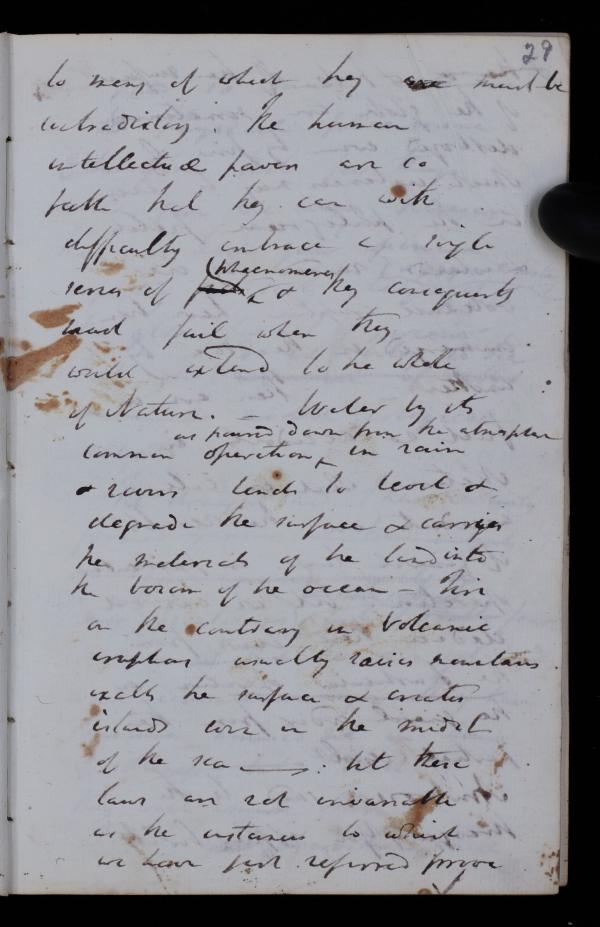 29
to many of which they are must be
contradictory. The human
intellectual powers are so
feeble that they can with
difficulty embrace a single
phaenomena
series of & they consequently
must fail when they
would extend to the whole
of Nature. – Water by its
as poured down from the atmosphere
common operation, in rain
& rivers tends to level &
degrade the surface & carries
the materials of the land into
the bosom of the ocean – Fire
on the contrary in Volcanic
eruptions usually raises mountains
exalts the surface & creates
islands even in the midst
of the sea —: but these
laws are not invariable
as the instances to which
we have just referred prove